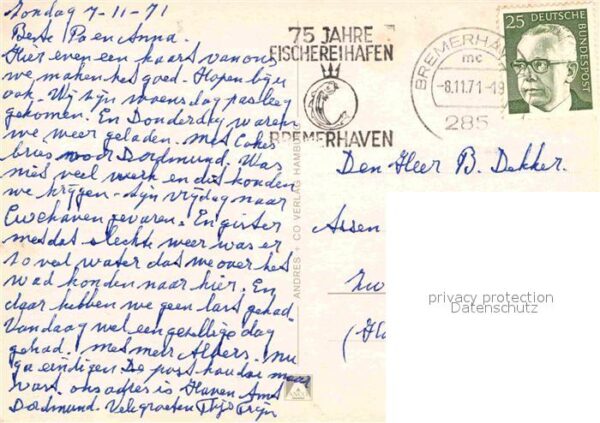 Zondag 7-11-71
Beste Pa en Anna.
Hier even een kaart van ons
we maken het goed. Hopen bij u
ook. Wij zijn woensdag pas leeg
gekomen. En Donderdag waren
we weer geladen. Met Cokes
bries voor Dordmund. Was
niet veel werk en dit konden
we krijgen. Zijn vrijdag naar
gevaren. En gister
met dat slechte weer was er
zo veel water dat we over het
wad konden naar hier. En
daar hebben we geen last gehad.
Vandaag wel een gezellige dag
gehad. Met meer Albers. nu
ga eindigen De post kan daar maar
vast. ons adres is Haven Amt
Dordmund. Vele groeten Thijs Trijn
75 JAHRE
FISCHEREIHAFEN
BREMERHAVEN
BREMERHA
mc
-8.11.71-19
285
25 DEUTSCHE
BUNDESPOST
ANDRES + CO VERLAG HAMBU
Den Heer B. Dekker.
Assen
privacy protection
Datenschutz